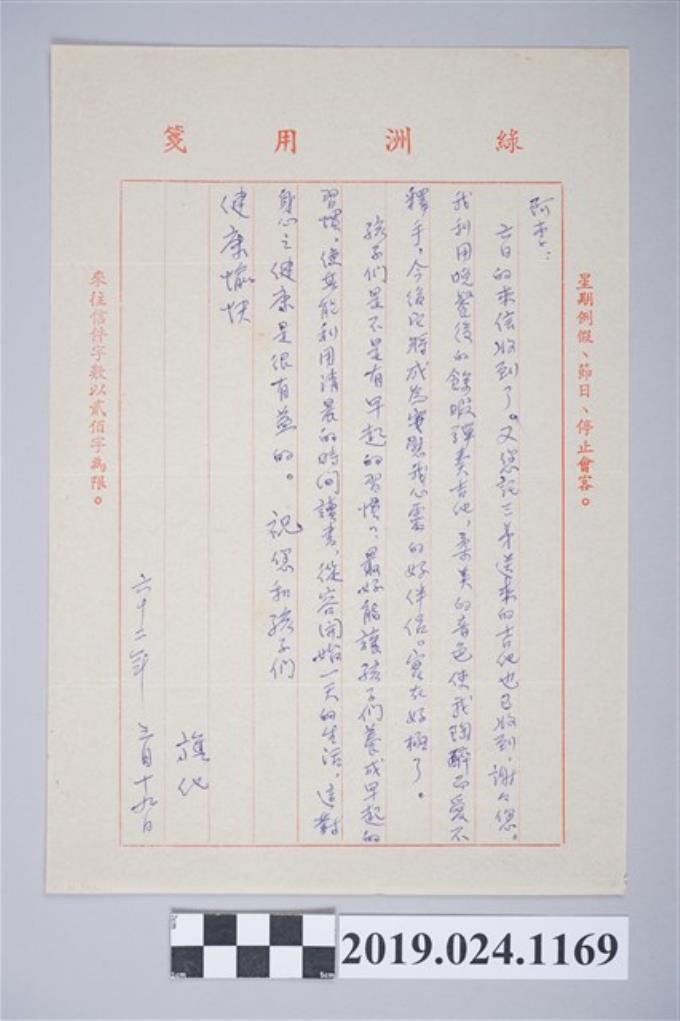 綠洲用箋
星期例假、節日、停止會客。
阿李：
六日的來信收到了。又您託三弟送來的吉他也已收到，謝々您。
我利用晚餐後的餘暇彈奏吉他，柔美的音色使我陶醉而愛不
釋手。今後它將成為安慰我心靈的好伴侶。實在好極了。
孩子們是不是有早起的習慣？最好能讓孩子們養成早起的
習慣，使其能利用清晨的時间讀書，從容開始一天的生活，這對
身心之健康是很有益的。祝您和孩子們
健康愉快
旗化
六十二年三月十九日
來往信件字數以貳佰字為限。
2019.024.1169